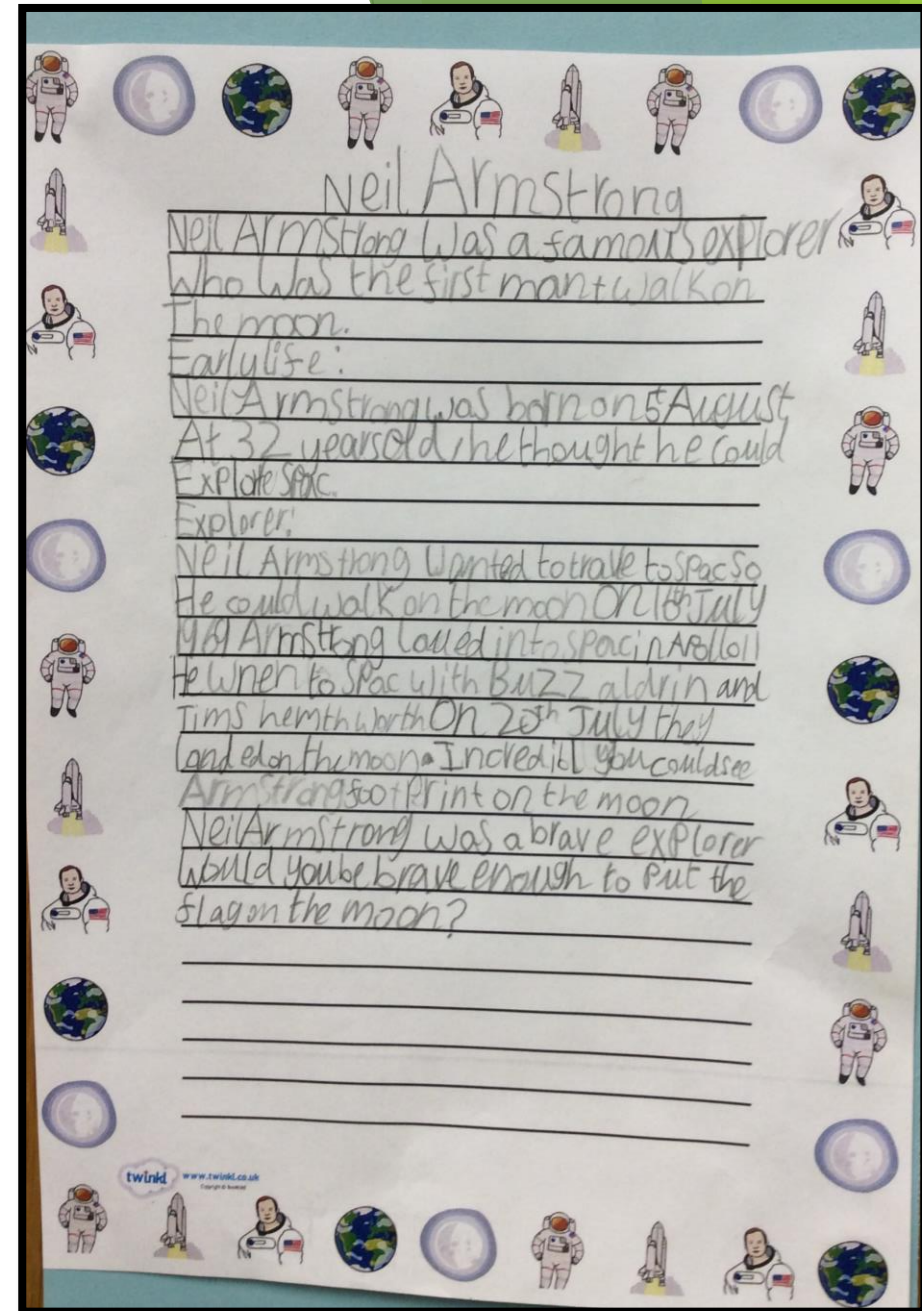 Neil Armstrong
Neil Armstrong was a famous explorer
Who was the first man t walk on
The moon.
Early life:
Neil Armstrong was born on 5 August
At 32 years old, he thought he could
Explore spac.
Explorer:
Neil Armstrong wanted to trave to spac so
He could walk on the moon On 16th July
1969 Armstrong into spac in Apollo 11
He wnen to spac with Buzz aldrin and
On 20th July they
landed on the moon. Incredibl you could see
Armstrong footprint on the moon
Neil Armstrong was a brave explorer
Would you be brave enough to put the
flag on the moon?
twinkl www.twinkl.co.uk